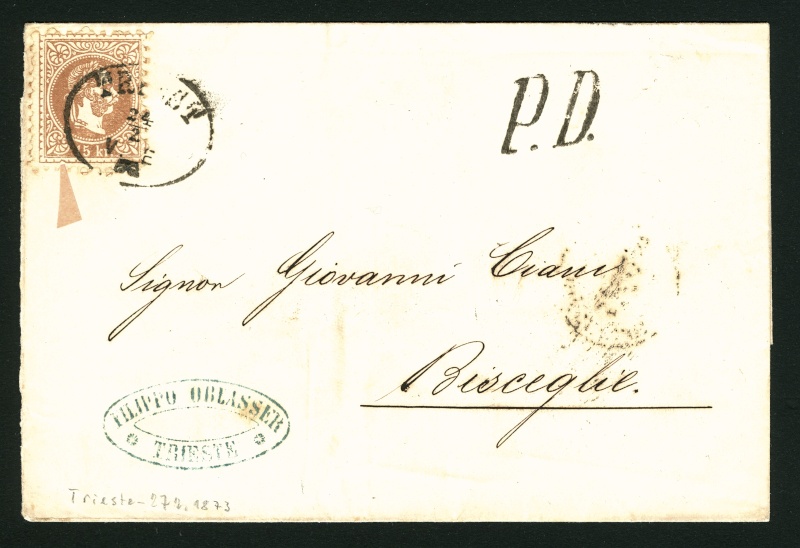 15 kr
TRIEST
24
2
P.D.
Signor Giovanni Ciani
Bisceglie.
FILIPPO OBLASSER
TRIESTE
Trieste - 272, 1873